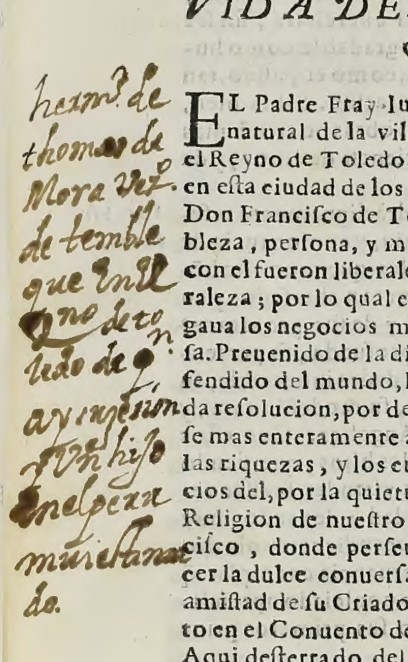 VIDA DE
herm.º de
thomas de
Mora Vez.º
de temble
que En El
Rno de to
ledo de q.n
ay
y Un hijo
En el peru
do.
EL Padre Fray Iu
natural de la vil
el Reyno de Toledo
en eſta ciudad de los
Don Franciſco de T
bleza, perſona, y m
con el fueron liberal
raleza; por lo qual e
gaua los negocios m
ſa. Preuenido de la di
fendido del mundo,
da reſolucion, por de
ſe mas enteramente
las riquezas, y los e
cios del, por la quiet
Religion de nueſtro
ciſco, donde perſe
cer la dulce conuerſ
amiſtad de ſu Criado
to en el Conuento d
Aqui deſterrado del